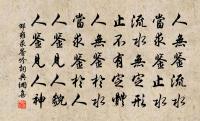 人無鑒流水
當求鑒止水
流水無定形
止水有定體
人無鑒於水
當求鑒於人
水鑒見人貌
人鑒見人神
邵雍求鑒吟詞典網書